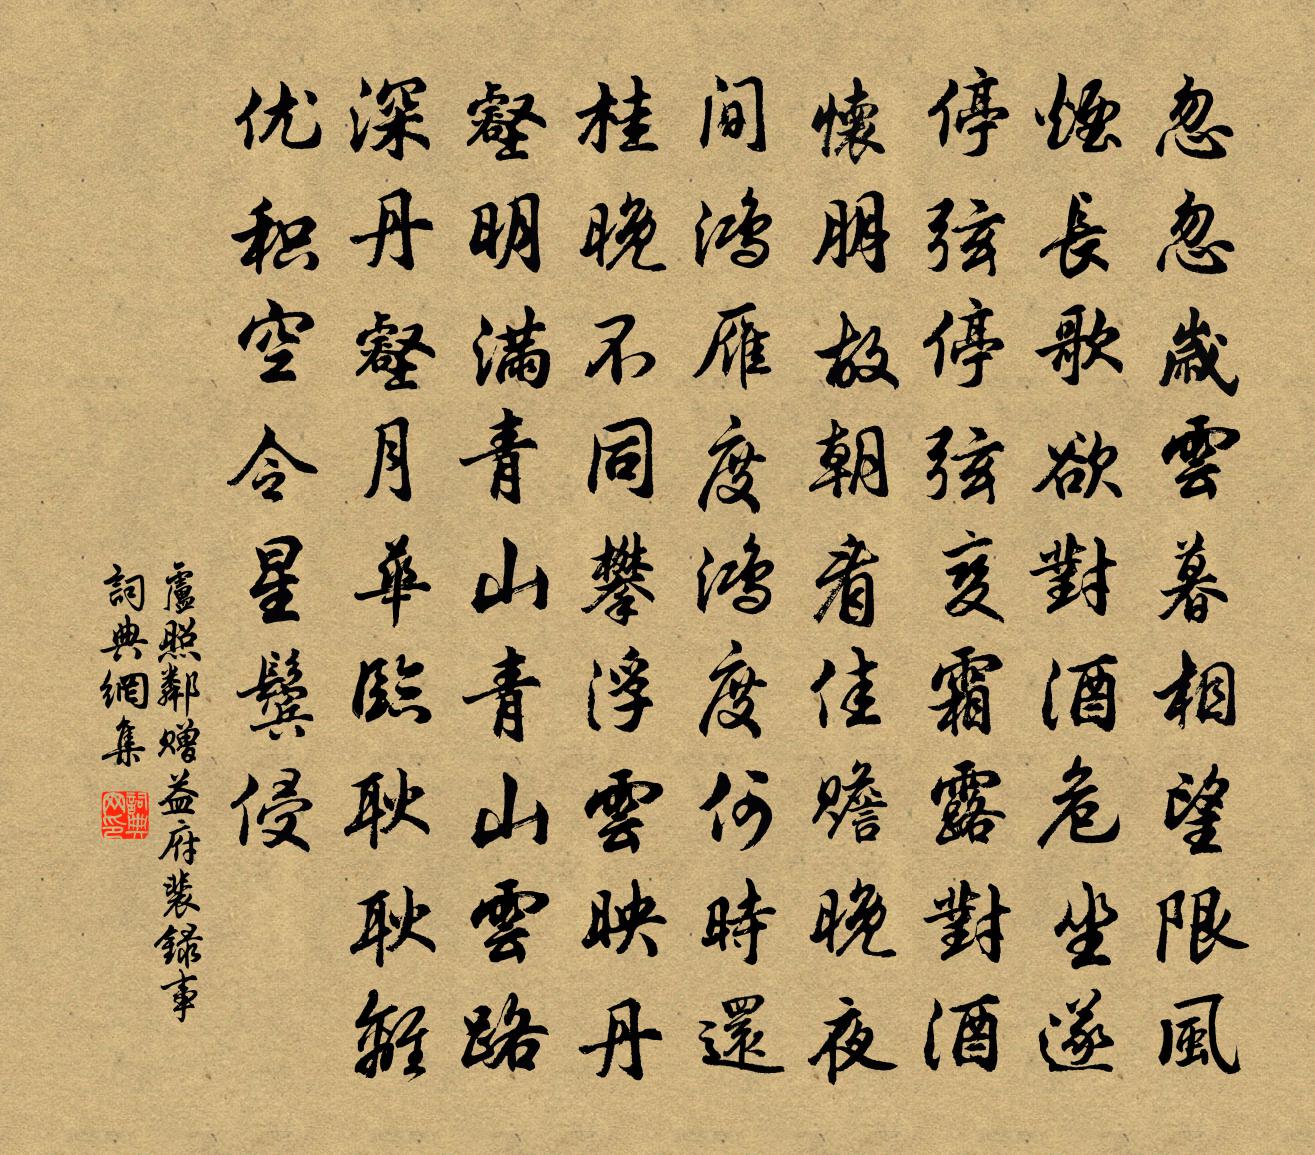 忽忽歲雲暮相望限風
煙長歌欲對酒危坐遂
停弦停弦變霜露對酒
懷朋故朝看佳贍晚夜
間鴻雁度鴻度何時還
桂晚不同攀浮雲映丹
壑明滿青山青山雲路
深丹壑月華臨耿耿離
优积空令星鬢侵
盧照鄰赠益府裴録事
詞典網集
詞典网印